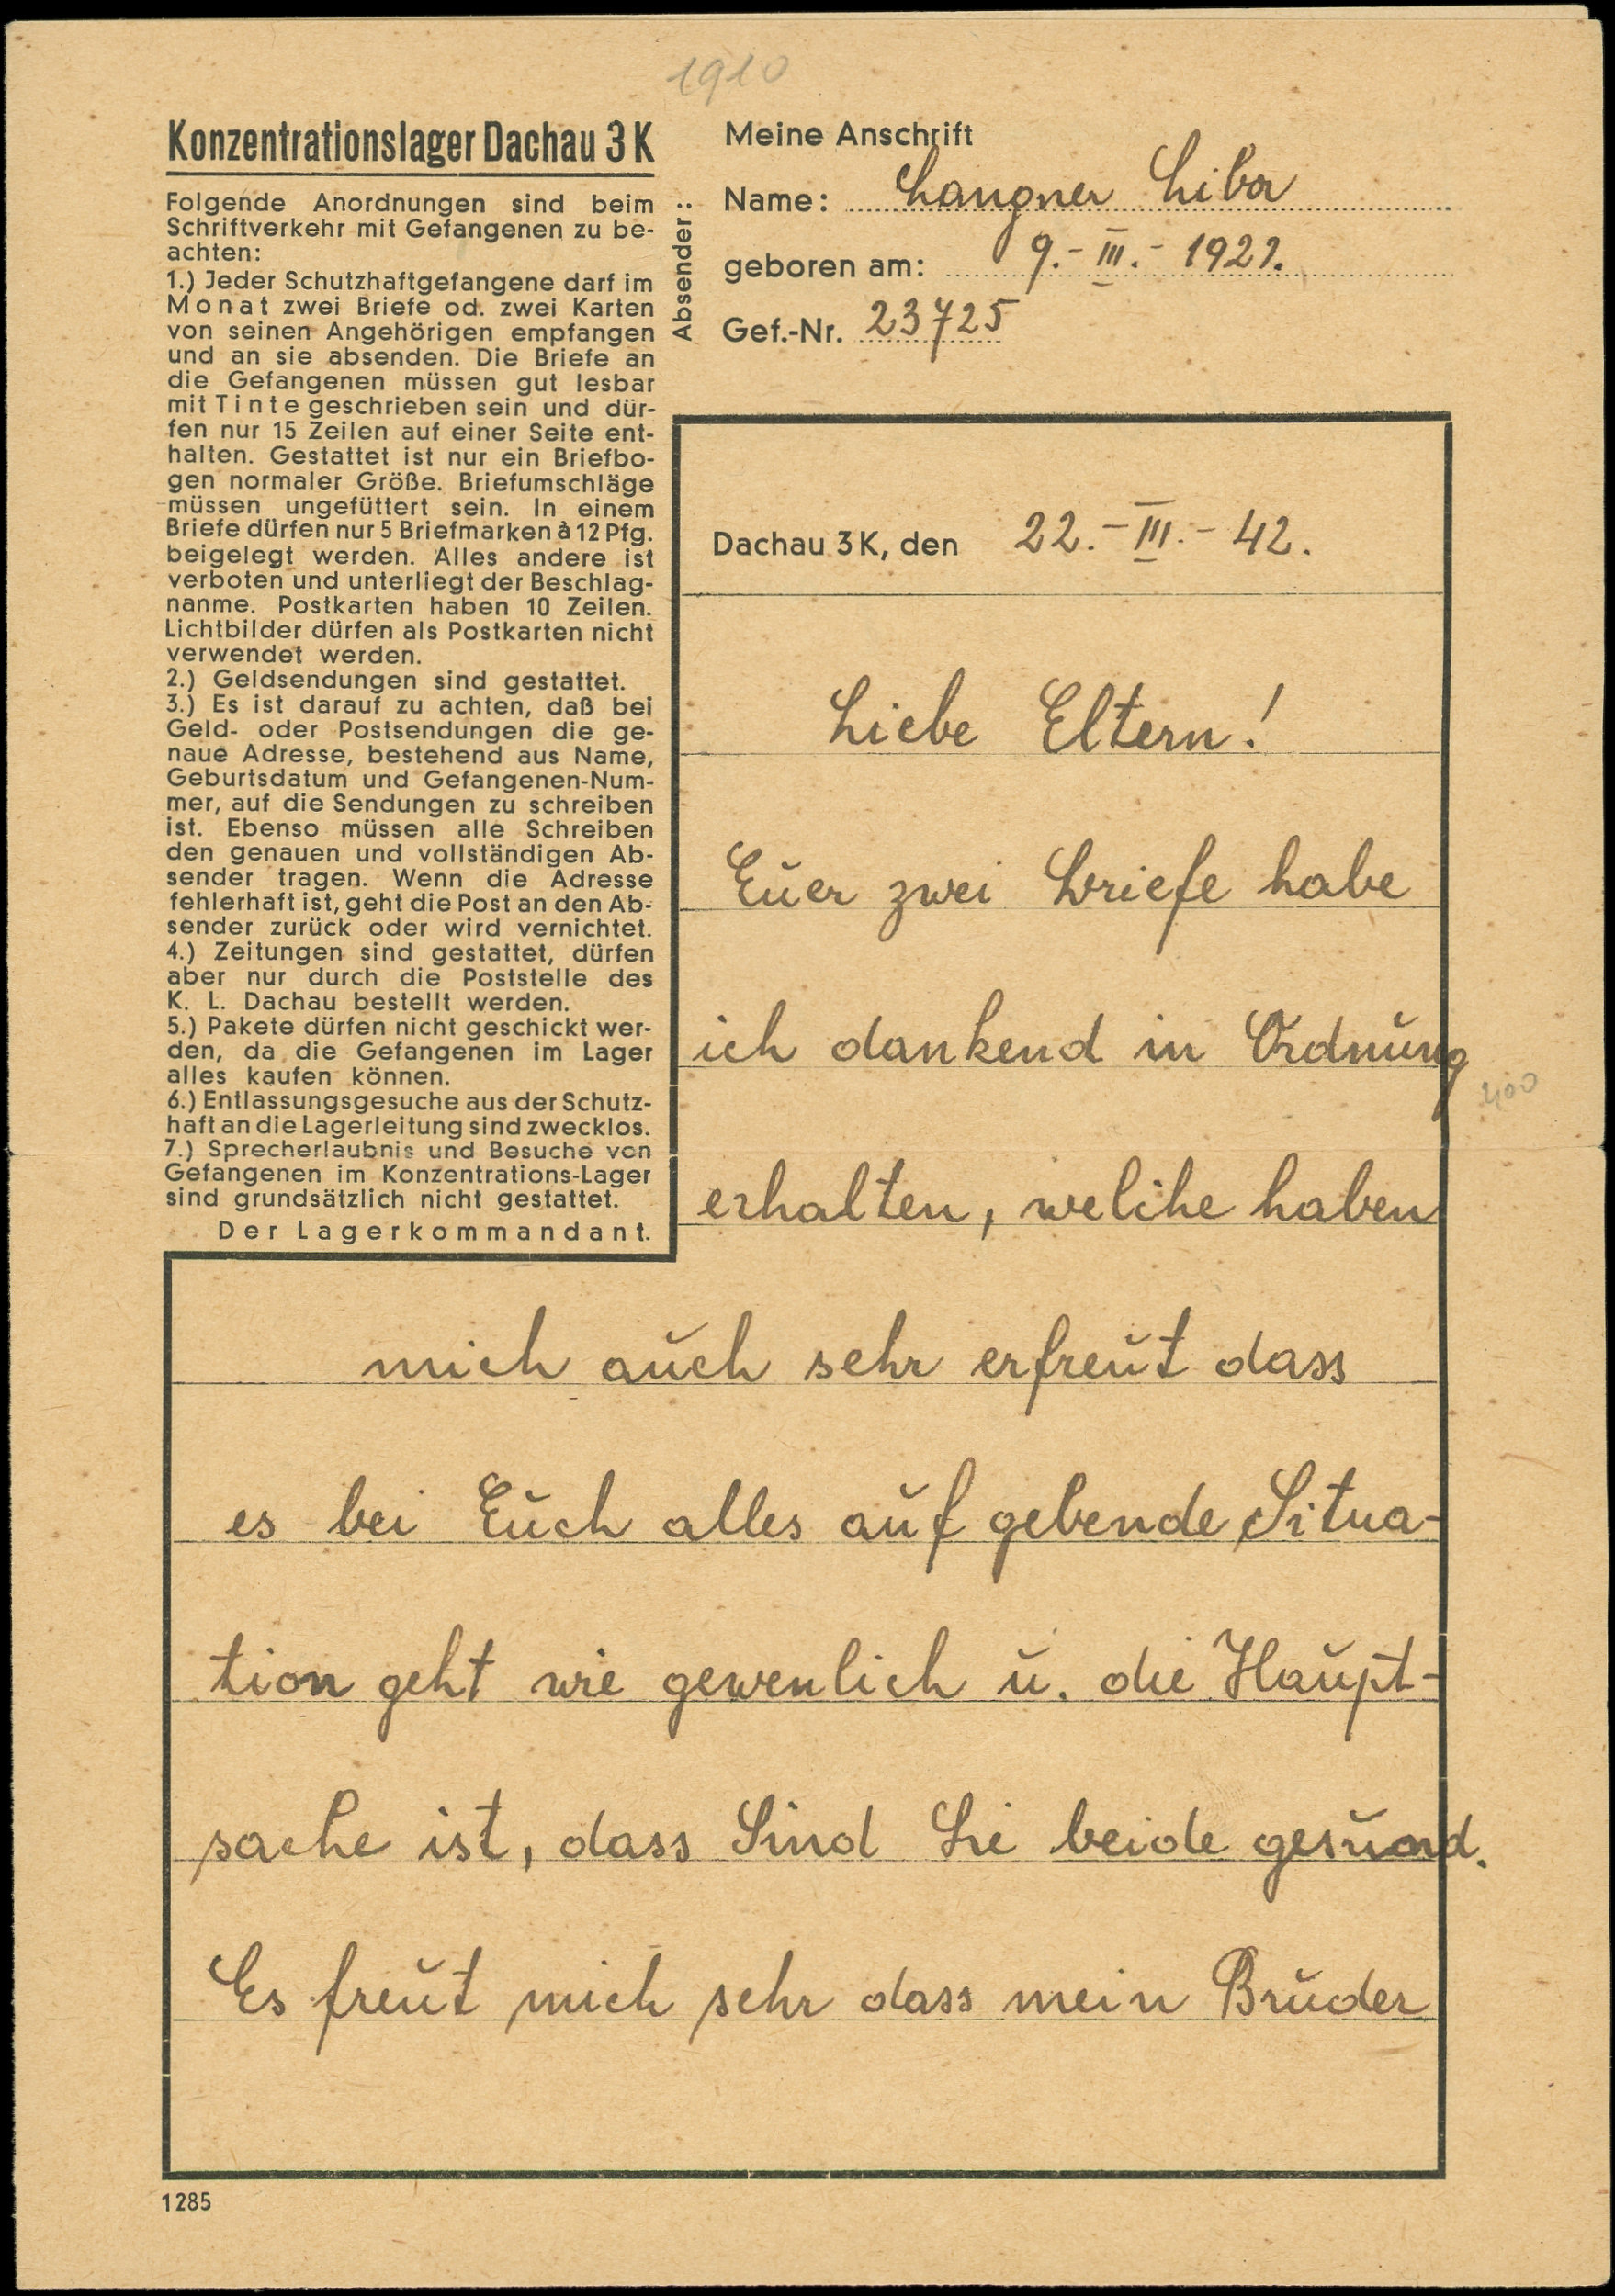 1910
Konzentrationslager Dachau 3 K
Folgende Anordnungen sind beim
Schriftverkehr mit Gefangenen zu be-
achten:
1.) Jeder Schutzhaftgefangene darf im
Monat zwei Briefe od. zwei Karten
von seinen Angehörigen empfangen
und an sie absenden. Die Briefe an
die Gefangenen müssen gut lesbar
mit Tinte geschrieben sein und dür-
fen nur 15 Zeilen auf einer Seite ent-
halten. Gestattet ist nur ein Briefbo-
gen normaler Größe. Briefumschläge
müssen ungefüttert sein. In einem
Briefe dürfen nur 5 Briefmarken à 12 Pfg.
beigelegt werden. Alles andere ist
verboten und unterliegt der Beschlag-
nanme. Postkarten haben 10 Zeilen.
Lichtbilder dürfen als Postkarten nicht
verwendet werden.
2.) Geldsendungen sind gestattet.
3.) Es ist darauf zu achten, daß bei
Geld- oder Postsendungen die ge-
naue Adresse, bestehend aus Name,
Geburtsdatum und Gefangenen-Num-
mer, auf die Sendungen zu schreiben
ist. Ebenso müssen alle Schreiben
den genauen und vollständigen Ab-
sender tragen. Wenn die Adresse
fehlerhaft ist, geht die Post an den Ab-
sender zurück oder wird vernichtet.
4.) Zeitungen sind gestattet, dürfen
aber nur durch die Poststelle des
K. L. Dachau bestellt werden.
5.) Pakete dürfen nicht geschickt wer-
den, da die Gefangenen im Lager
alles kaufen können.
6.) Entlassungsgesuche aus der Schutz-
haft an die Lagerleitung sind zwecklos.
7.) Sprecherlaubnis und Besuche von
Gefangenen im Konzentrations-Lager
sind grundsätzlich nicht gestattet.
Der Lagerkommandant.
Absender:
Meine Anschrift
Name: Langner Libor
geboren am: 9.-III.- 1921.
Gef.-Nr. 23725
Dachau 3 K, den 22.-III.- 42.
Liebe Eltern!
Euer zwei Briefe habe
ich dankend in Ordnung
erhalten, welche haben
mich auch sehr erfreut dass
es bei Euch alles auf gebende Situa-
tion geht wie gewenlich u. die Haupt-
sache ist, dass Sind Sie beide gesund.
Es freut mich sehr dass mein Bruder
1285